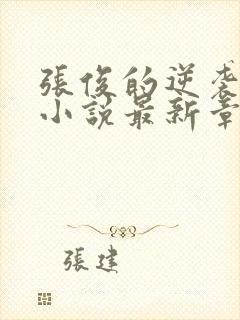 張俊的逆袭
小說最新章
張建